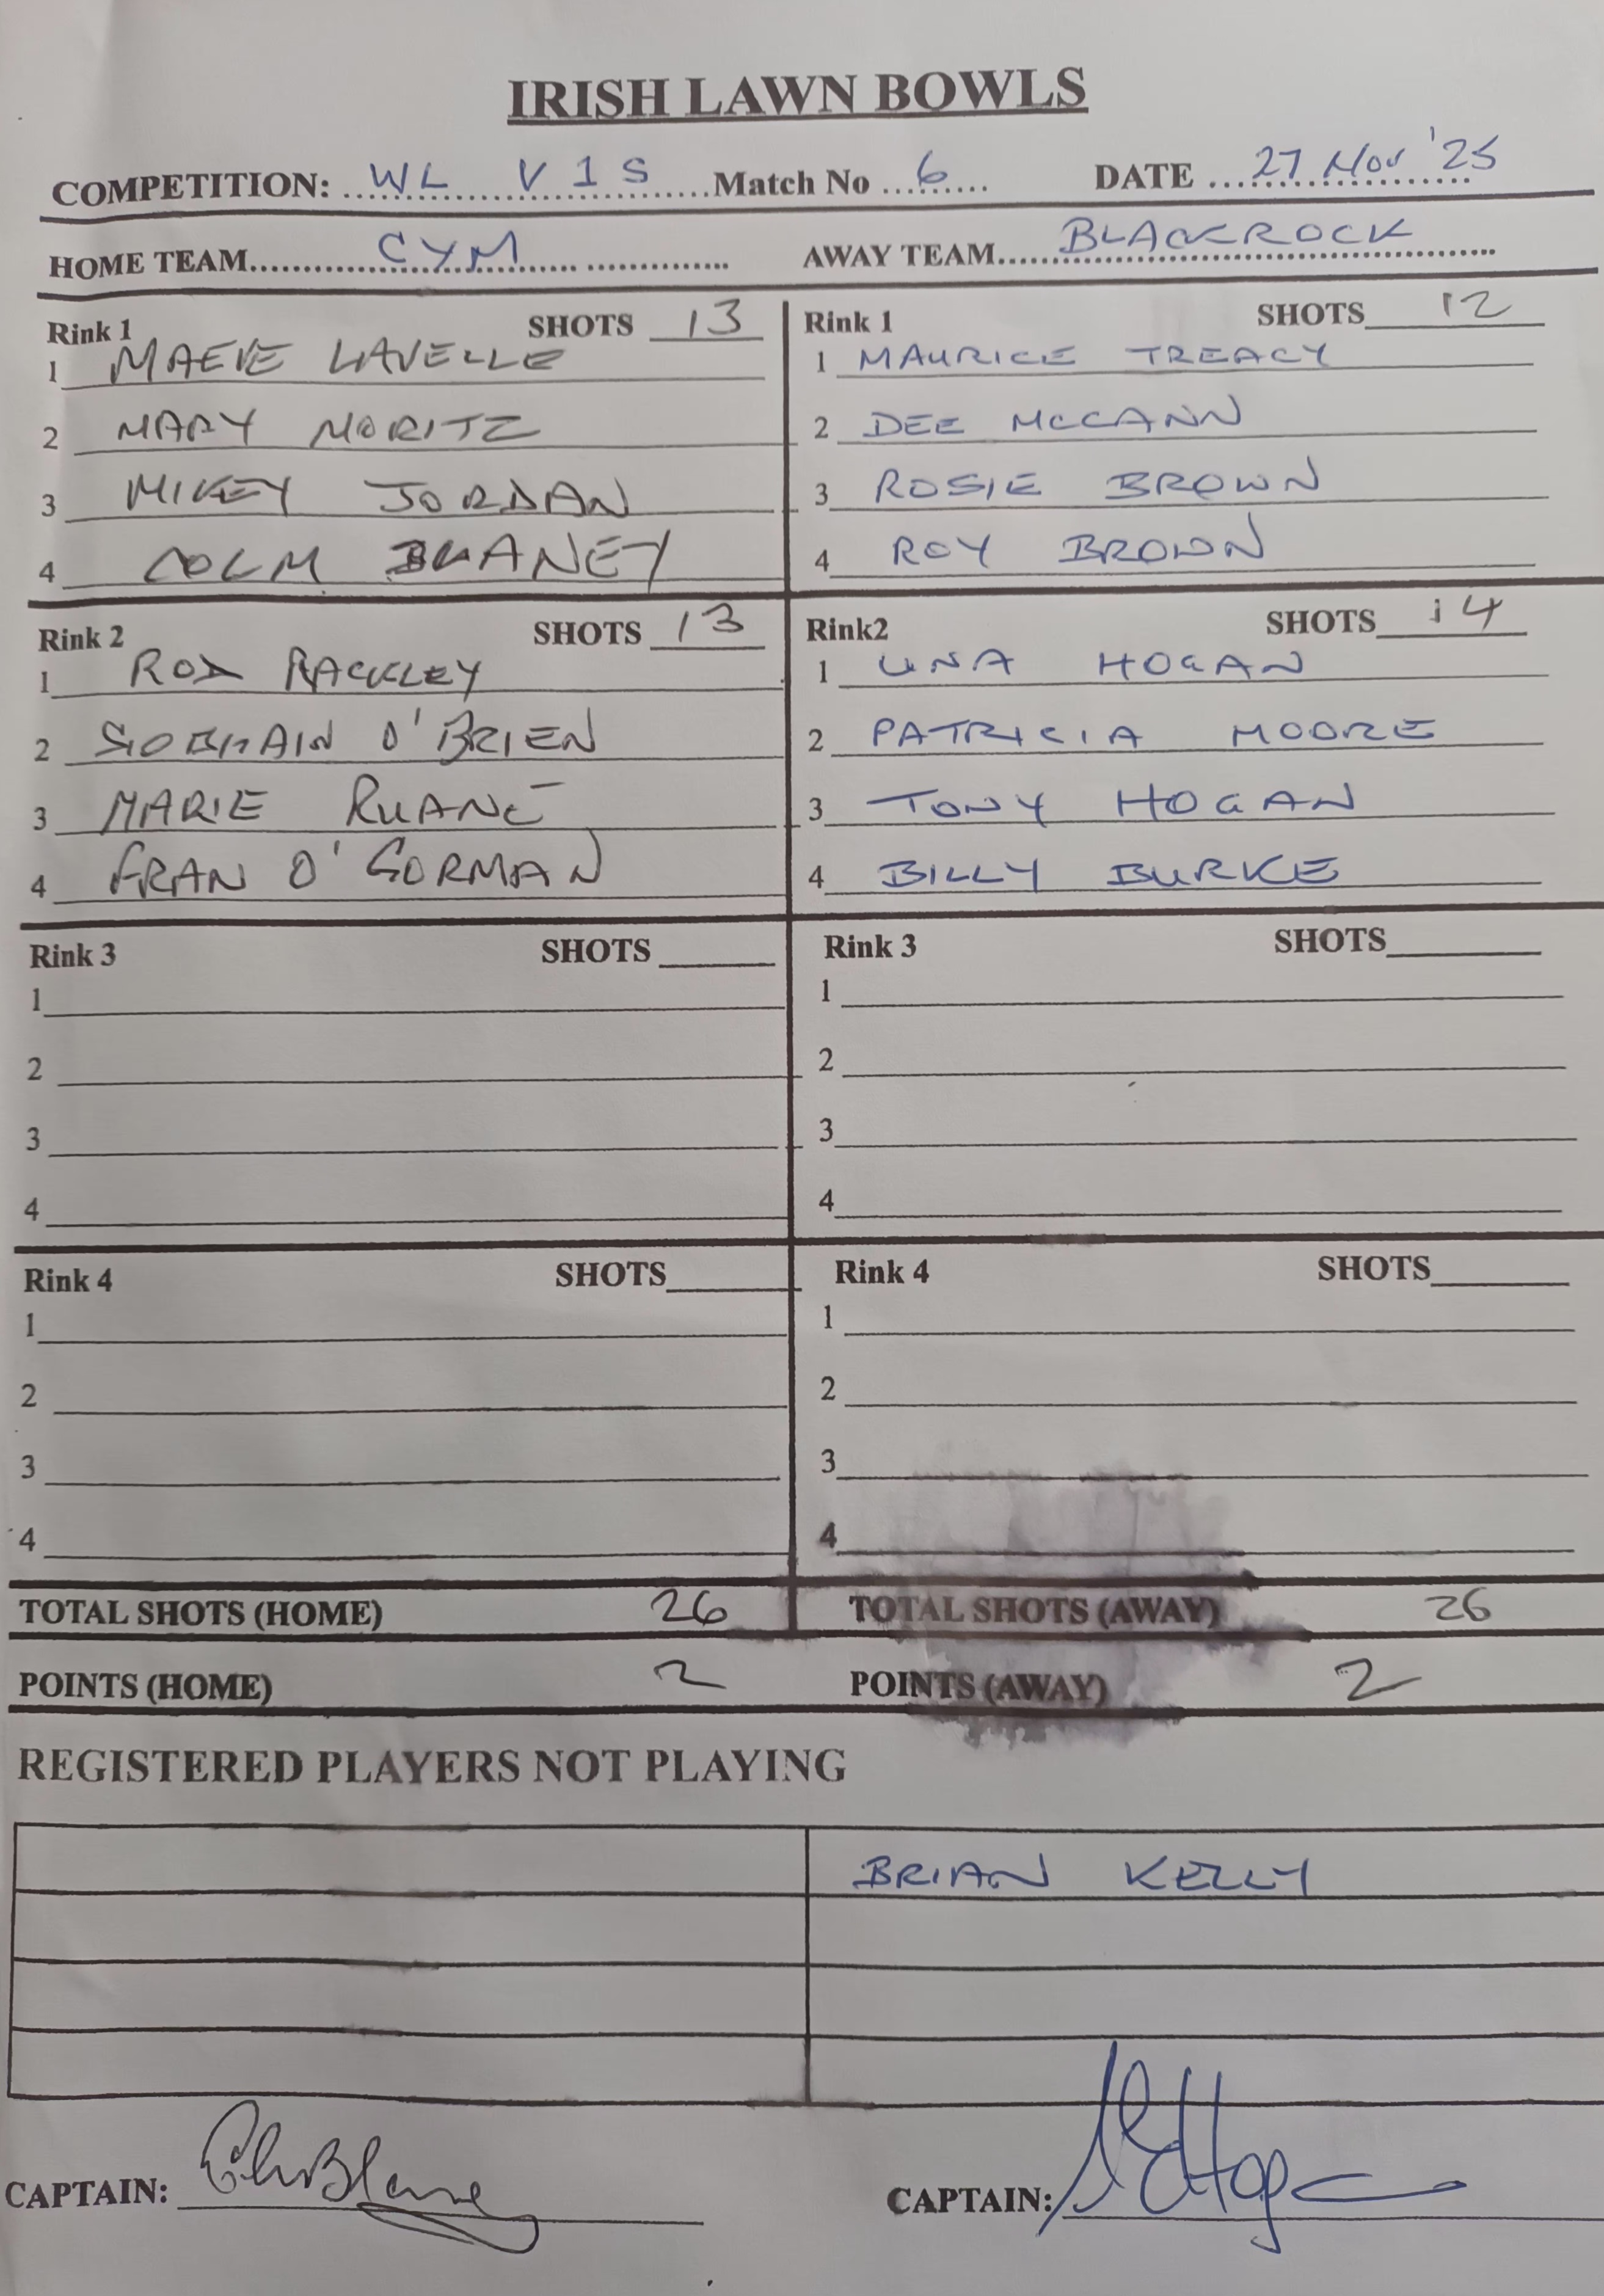 IRISH LAWN BOWLS
COMPETITION: WL V1S Match No 6 DATE 27 Nov '25
HOME TEAM CYM AWAY TEAM BLACKROCK
Rink 1 SHOTS 13
1 MAEVE LAVELLE
2 MARY MORITZ
3 MIKEY JORDAN
4 COLM BLANEY
Rink 1 SHOTS 12
1 MAURICE TREACY
2 DEE McCANN
3 ROSIE BROWN
4 ROY BROWN
Rink 2 SHOTS 13
1 ROD RACKLEY
2 SIOBHAIN O'BRIEN
3 MARIE RUANE
4 FRAN O'GORMAN
Rink2 SHOTS 14
1 UNA HOGAN
2 PATRICIA MOORE
3 TONY HOGAN
4 BILLY BURKE
Rink 3 SHOTS
1
2
3
4
Rink 3 SHOTS
1
2
3
4
Rink 4 SHOTS
1
2
3
4
Rink 4 SHOTS
1
2
3
4
TOTAL SHOTS (HOME) 26 TOTAL SHOTS (AWAY) 26
POINTS (HOME) 2 POINTS (AWAY) 2
REGISTERED PLAYERS NOT PLAYING
BRIAN KELLY
CAPTAIN: CAPTAIN: